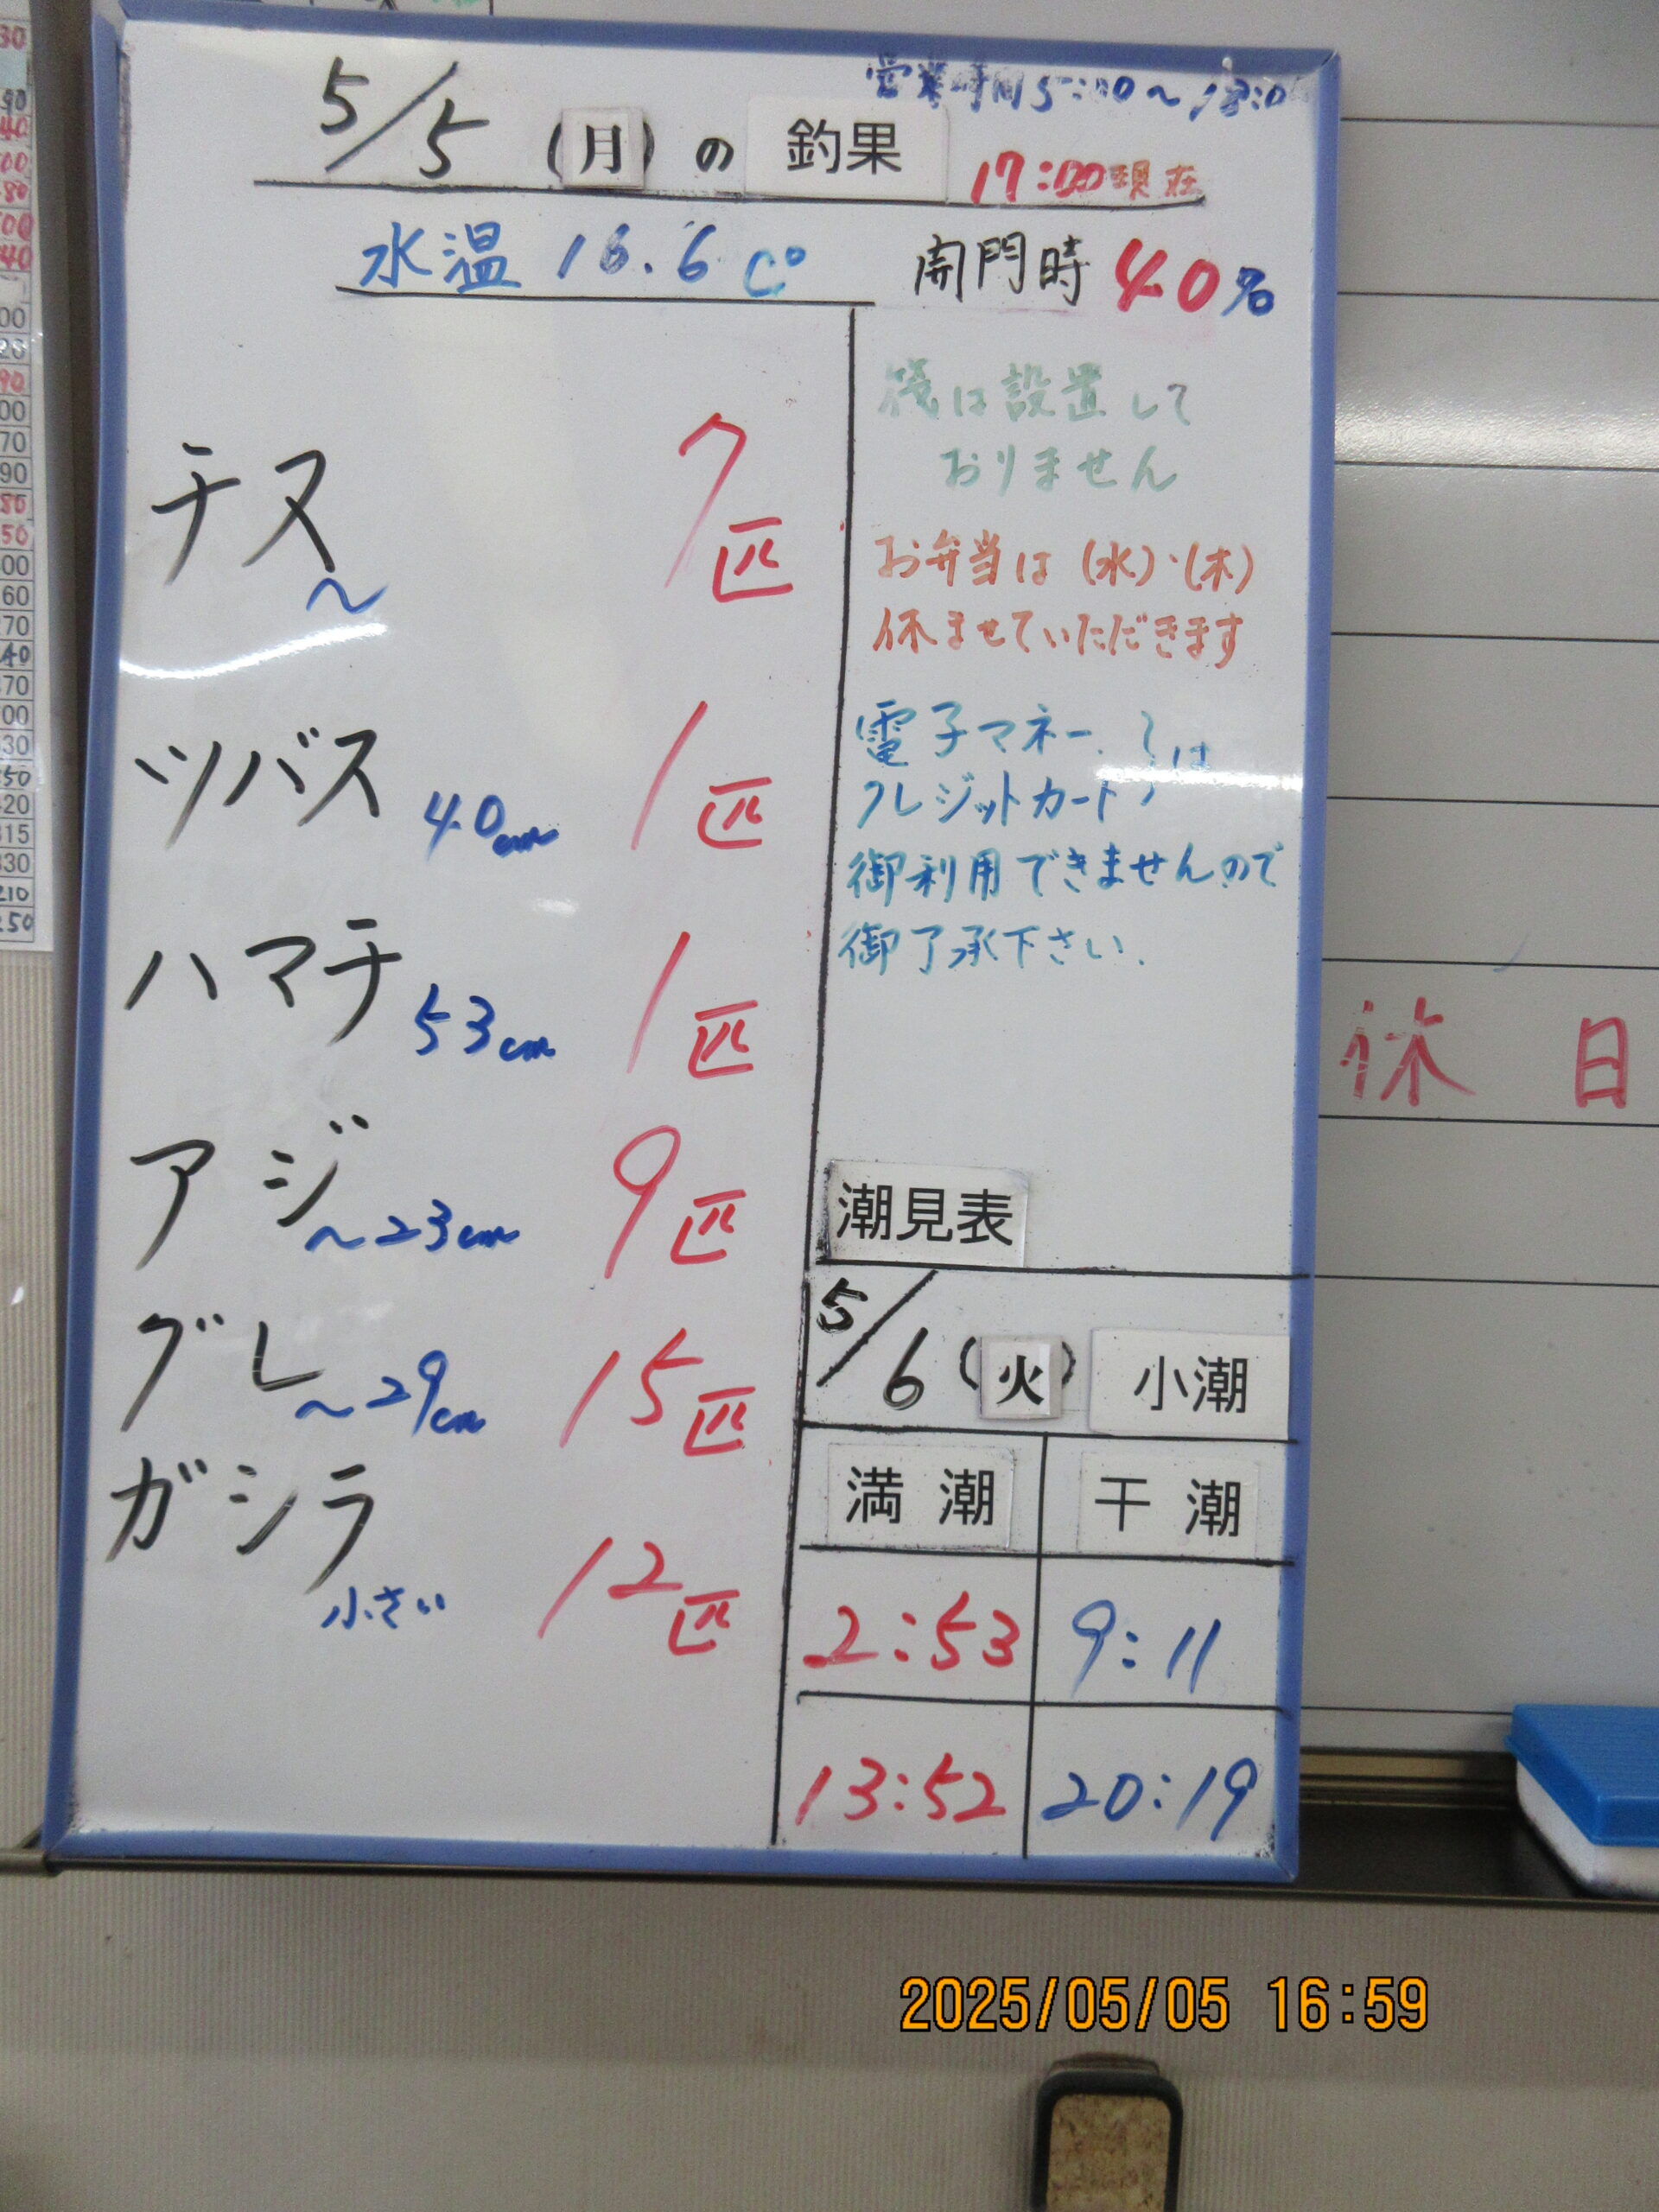 営業時間 5:00～18:00
5/5 (月) の 釣果 17:00現在
水温 16.6 C°
開門時 40名
チヌ ～ 7匹
ツバス 40cm 1匹
ハマチ 53cm 1匹
アジ ～23cm 9匹
グレ ～29cm 15匹
ガシラ 小さい 12匹
筏は設置して
おりません
お弁当は(水)・(木)
休ませていただきます
電子マネー
クレジットカード は
御利用できませんので
御了承下さい.
潮見表
5/6 (火) 小潮
満潮 干潮
2:53 9:11
13:52 20:19
休日
2025/05/05 16:59